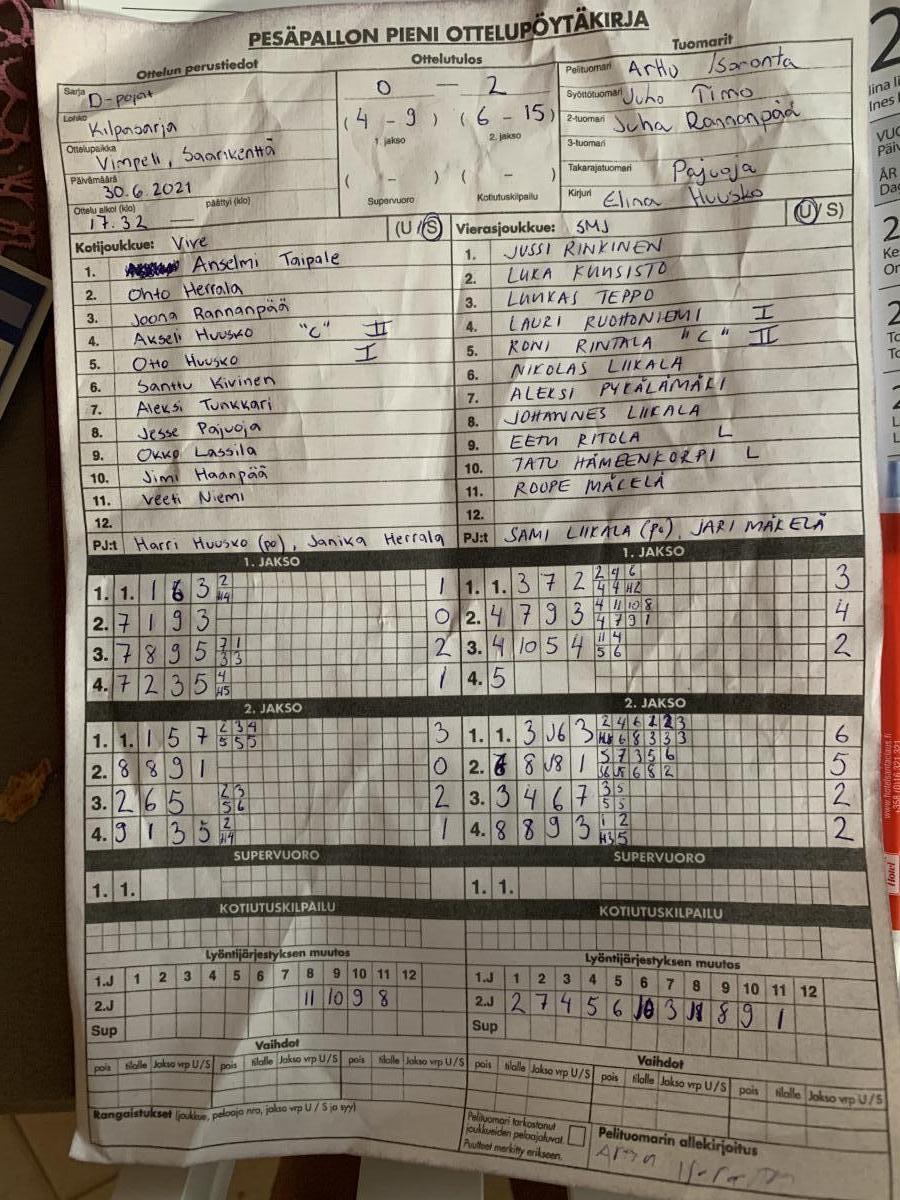 PESÄPALLON PIENI OTTELUPÖYTÄKIRJA
Ottelun perustiedot
Sarja D-pojat
Lohko Kilpasarja
Ottelupaikka Vimpeli, Saarikenttä
Päivämäärä 30.6.2021
Ottelu alkoi (klo) 17.32 — päättyi (klo)
Ottelutulos
0 — 2
(4 - 9) (6 - 15)
1. jakso 2. jakso
( - ) ( - )
Supervuoro Kotiutuskilpailu
Tuomarit
Pelituomari Arttu Isoranta
Syöttötuomari Juho Timo
2-tuomari Juha Rannanpää
3-tuomari
Takarajatuomari Pajuoja
Kirjuri Elina Huusko
Kotijoukkue: Vive (U/S)
1. Anselmi Taipale
2. Ohto Herrala
3. Joona Rannanpää
4. Akseli Huusko "C" II
5. Otto Huusko I
6. Santtu Kivinen
7. Aleksi Tunkkari
8. Jesse Pajuoja
9. Okko Lassila
10. Jimi Haanpää
11. Veeti Niemi
12.
PJ:t Harri Huusko (po), Janika Herrala
Vierasjoukkue: SMJ (U/S)
1. JUSSI RINKINEN
2. LUKA KUUSISTO
3. LUUKAS TEPPO
4. LAURI RUOHONIEMI I
5. RONI RINTALA "C" II
6. NIKOLAS LIIKALA
7. ALEKSI PYKÄLÄMÄKI
8. JOHANNES LIIKALA
9. EETU RITOLA L
10. TATU HÄMEENKORPI L
11. ROOPE MÄKELÄ
12.
PJ:t SAMI LIIKALA (po), JARI MÄKELÄ
1. JAKSO
1. 1. 1 6 3 2 H4 1
2. 7 1 9 3 0
3. 7 8 9 5 7 1 3 3 2
4. 7 2 3 5 4 H5 1
1. JAKSO
1. 1. 3 7 2 2 4 6 4 4 H2 3
2. 4 7 9 3 4 11 10 8 4 7 9 1 4
3. 4 10 5 4 11 4 5 6 2
4. 5
2. JAKSO
1. 1. 1 5 7 2 3 4 5 5 5 3
2. 8 8 9 1 0
3. 2 6 5 2 3 5 6 2
4. 9 1 3 5 2 H4 1
2. JAKSO
1. 1. 3 J6 3 6
2. 8 J8 1 5
3. 3 4 6 7 3 5 5 5 2
4. 8 8 9 3 1 2 H3 5 2
SUPERVUORO
1. 1.
SUPERVUORO
1. 1.
KOTIUTUSKILPAILU
KOTIUTUSKILPAILU
Lyöntijärjestyksen muutos
1.J 1 2 3 4 5 6 7 8 9 10 11 12
2.J 11 10 9 8
Sup
Lyöntijärjestyksen muutos
1.J 1 2 3 4 5 6 7 8 9 10 11 12
2.J 2 7 4 5 6 10 3 11 8 9 1
Sup
Vaihdot
pois tilalle Jakso vrp U/S pois tilalle Jakso vrp U/S pois tilalle Jakso vrp U/S
Vaihdot
pois tilalle Jakso vrp U/S pois tilalle Jakso vrp U/S pois tilalle Jakso vrp U/S
Rangaistukset (joukkue, pelaaja nro, jakso vrp U / S ja syy)
Pelituomari tarkastanut
joukkueiden pelaajaluvat.
Puutteet merkitty erikseen.
Pelituomarin allekirjoitus